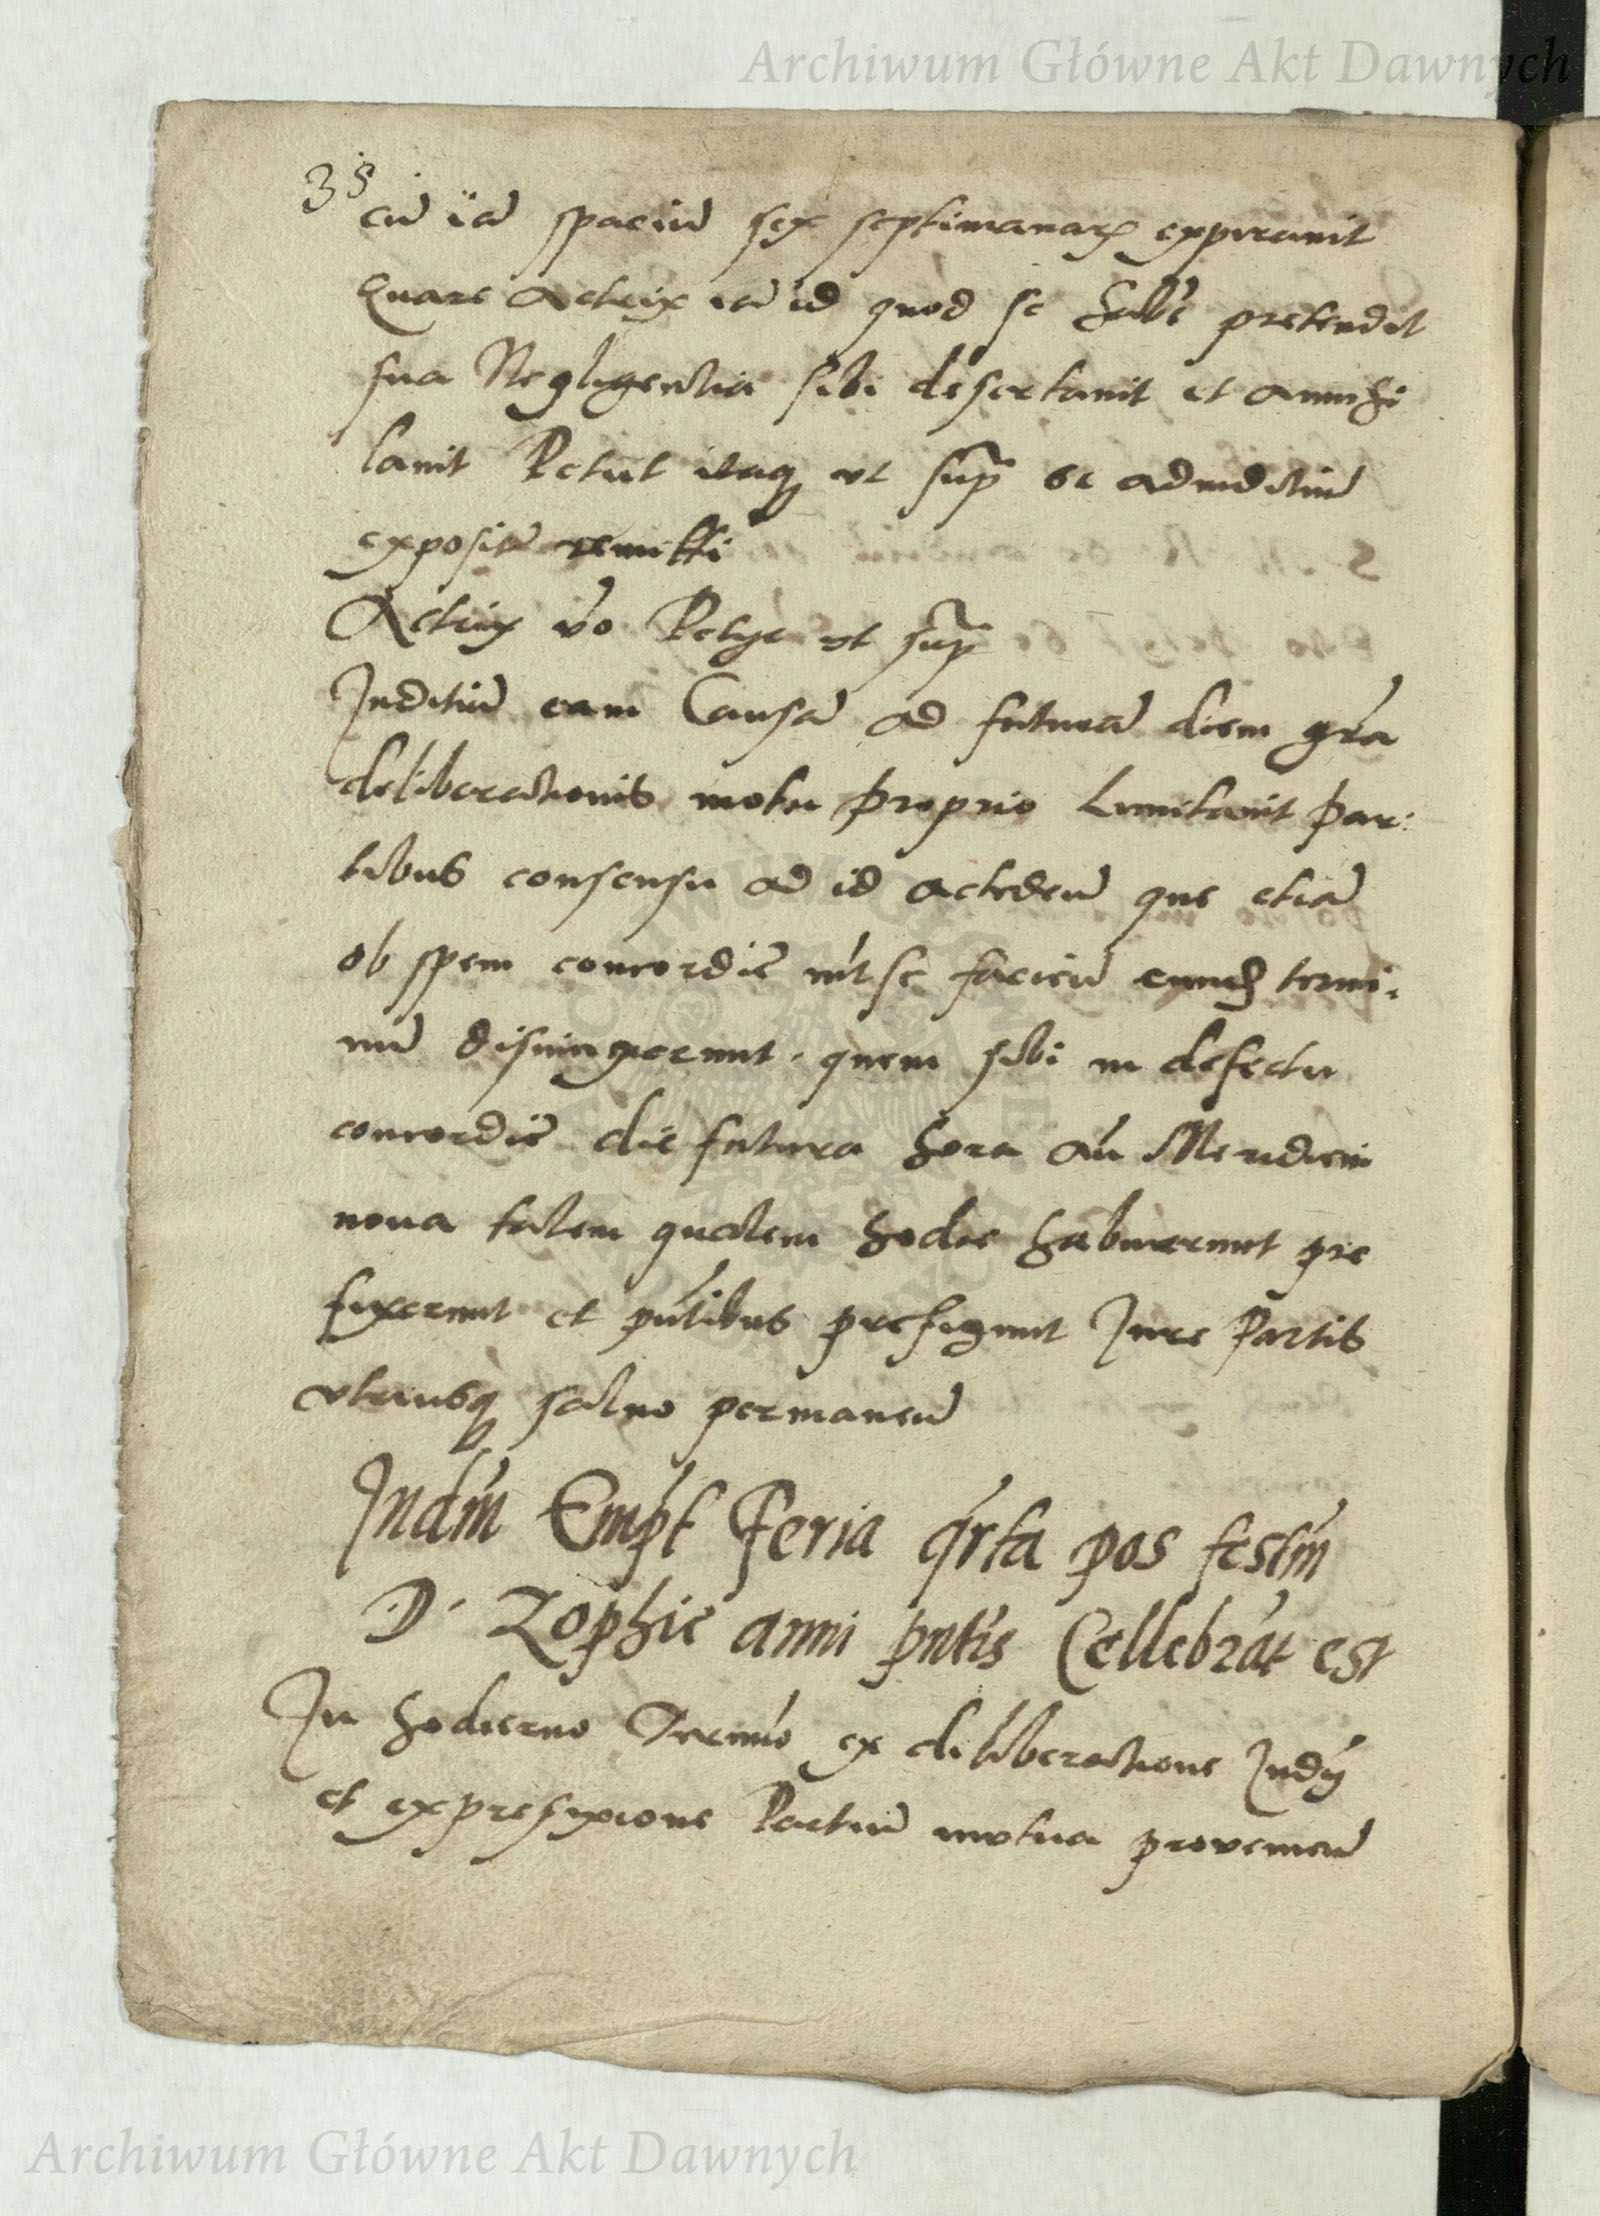 Archiwum Główne Akt Dawnych
38
cū iā spaciū sex septimanarꝝ expiravit
Quare Actrix iā id quod se habē pretendit
sua Negligentia sibi desertavit et annihi
lavit Petit itaqꝫ ut supͣ se ad iuditiū
expositē remitti
Actrix vo Petyt ut supͣ
Juditiū eam Causā ad futurā diem gr̄a
deliberationis motu proprio Limitavit par:
tibus consensu ad id accedeñ que etiā
ob spem concordie int se facieñ eund termi-
nū disiunxerunt. quem sibi in defectu
concordie die futura hora añ Meridiem
nona talem qualem hodie habuerunt pre
fixerunt et pñtibus prefigunt Jure Partis
utriusqꝫ salvo permaneñ
Judm̄ Empt Feria qrta pos festm̄
D. Zophie anni pntis Cellebrat est
In hodierno Termīo ex deliberatione Judӱ
et ex prefixione Partiū mutua provenieñ
Archiwum Główne Akt Dawnych